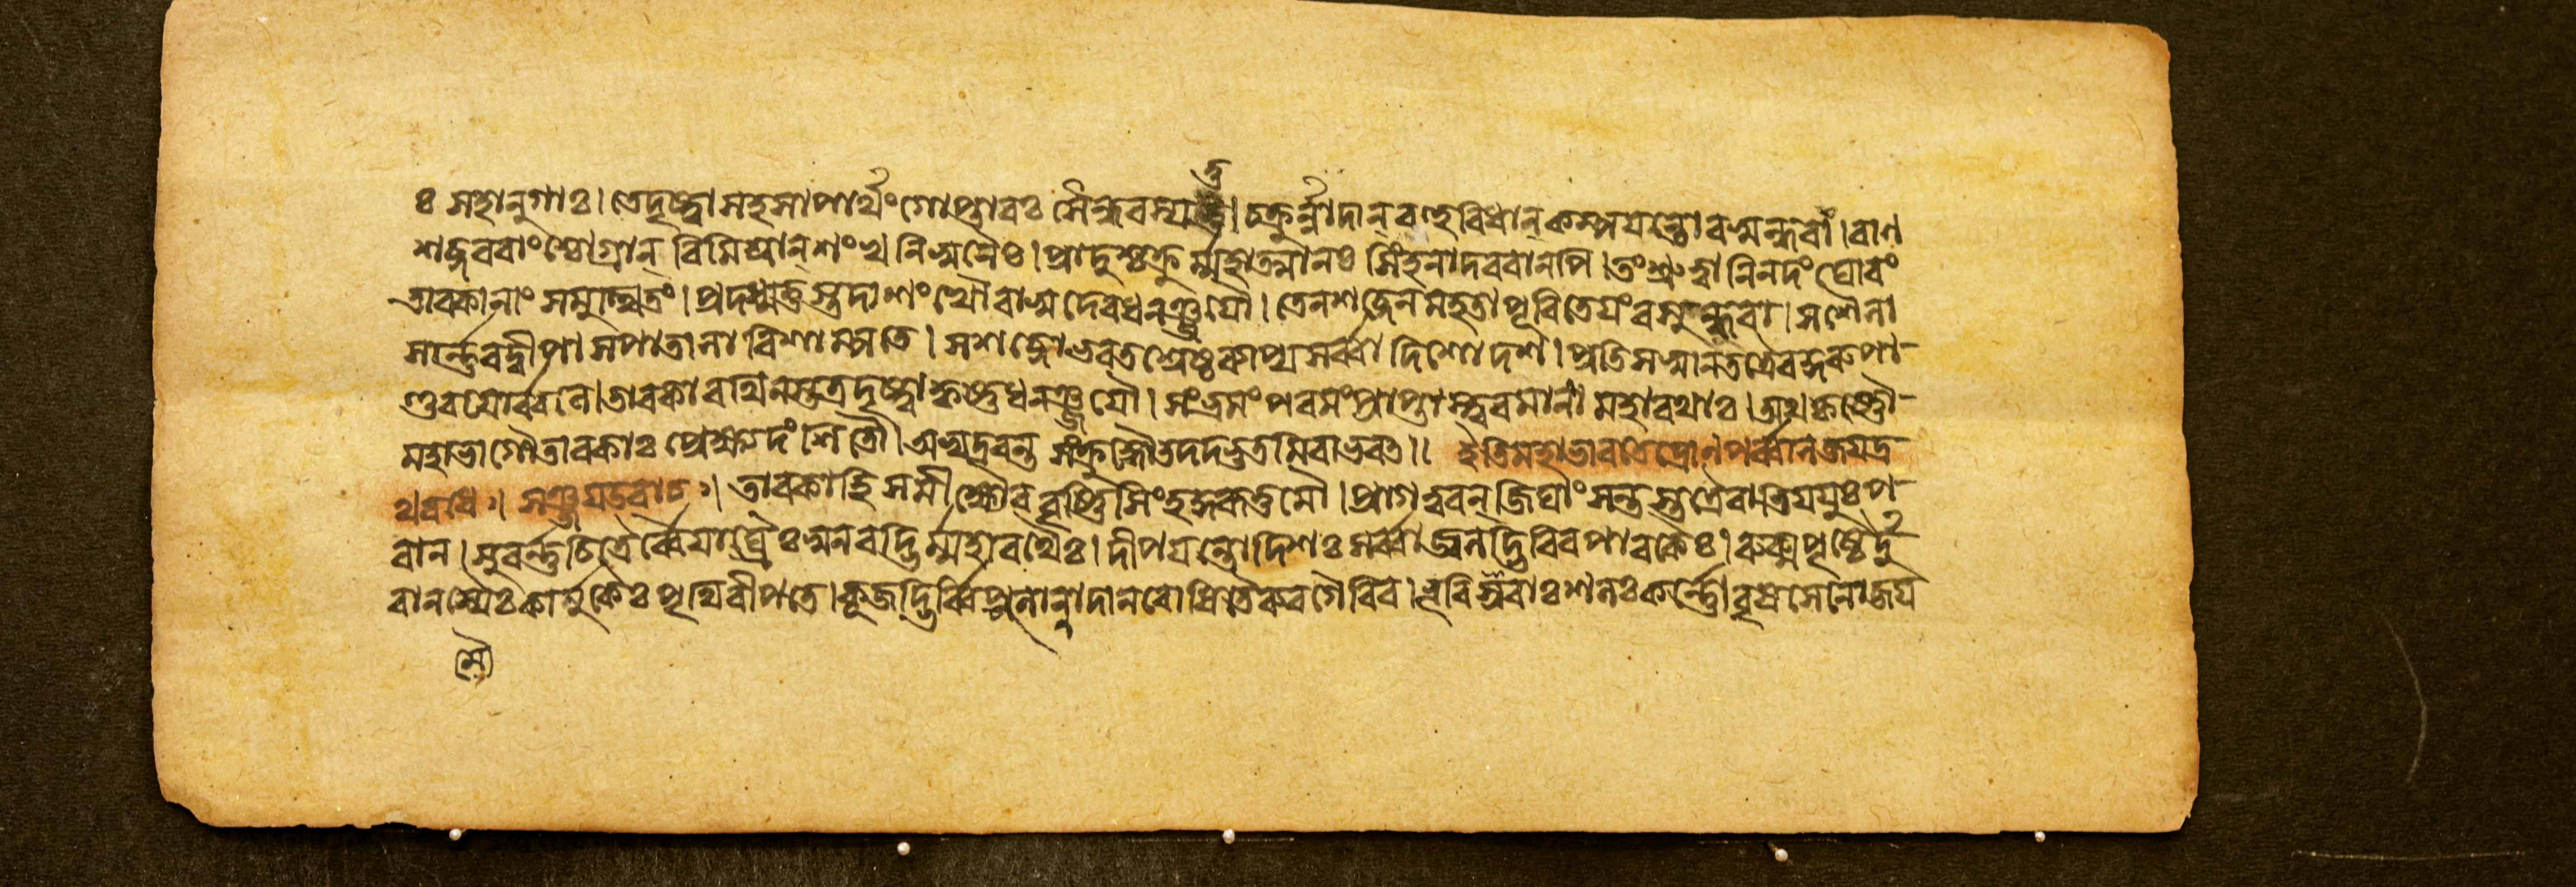 ঃ সহানুগাঃ। তে দৃষ্ট্বা সহসা পার্থং গোপ্তারঃ সৈন্ধবস্য তু। চক্রুর্ন্নাদান্ বহুবিধান্ কম্পয়ন্তো বসুন্ধরাং। বাণ
শব্দরবাংশ্চোগ্রান্ বিমিশ্রান্ শংখনিস্বনৈঃ। প্রাদুশ্চক্রুর্ম্মহাত্মানঃ সিংহনাদরবানপি। তং শ্রুত্বা নিনদং ঘোরং
তাবকানাং সমুত্থিতং। প্রদধ্মতুস্তদা শংখৌ বাসুদেবধনঞ্জয়ৌ। তেন শব্দেন মহতা পূরিতেয়ং বসুন্ধরা। সশৈলা
সার্ণ্ণবদ্বীপা সপাতালা বিশাম্পতে। স শব্দো ভরতশ্রেষ্ঠ ব্যাপ্য সর্ব্বা দিশো দশ। প্রতিসস্বান তত্রৈব কুরুপা
ণ্ডবয়োর্ব্বলে। তাবকা রথিনস্তত্র দৃষ্ট্বা কৃষ্ণধনঞ্জয়ৌ। সংভ্রমং পরমং প্রাপ্তাস্ত্বরমানা মহারথাঃ। অথ কৃষ্ণৌ
মহাভাগৌ তাবকাঃ প্রেক্ষ্য দংশিতৌ। অভ্যদ্রবন্ত সংক্রুদ্ধৌ তদদদ্ভুতমিবাভবৎ॥ ইতি মহাভারতে দ্রোণপর্ব্বনি জয়দ্র
থবধঃ। সঞ্জয় উবাচঃ। তাবকা হি সমীক্ষ্যৈব বৃষ্ণিসিংহকুরূত্তমৌ। প্রাগত্বরন্ জিঘাংসন্তস্তথৈব প
রান। সুবর্ণ্ণচিত্রৈর্ব্বৈয়াঘ্রৈঃ স্বনবদ্ভির্ম্মহারথৈঃ। দীপয়ন্তো দিশঃ সর্ব্বা জ্বলদ্ভিরিব পাবকৈঃ। রুক্মপৃষ্ঠৈর্দু
রানম্যৈঃ কার্মুকৈঃ পৃথিবীপতে। কূজদ্ভি রোষিতৈরুরগৈরিব। ভূরিশ্রবাঃ শলঃ কর্ণ্ণো বৃষসেনো জয়